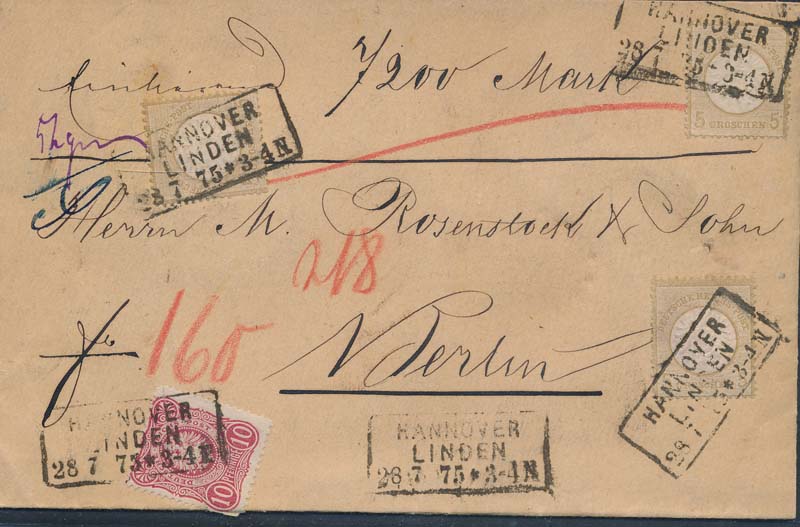 7200 Mark
HANNOVER
LINDEN
28 7 75 * 3-4 N
5 GROSCHEN 5
HANNOVER
LINDEN
28 7 75 * 3-4 N
Herrn M. Rosenstock & Sohn
218
160
Berlin
DEUTSCHE REICHS-POST
HANNOVER
LINDEN
28 7 75 * 3-4 N
HANNOVER
LINDEN
28 7 75 * 3-4 N
10
10
HANNOVER
LINDEN
28 7 75 * 3-4 N